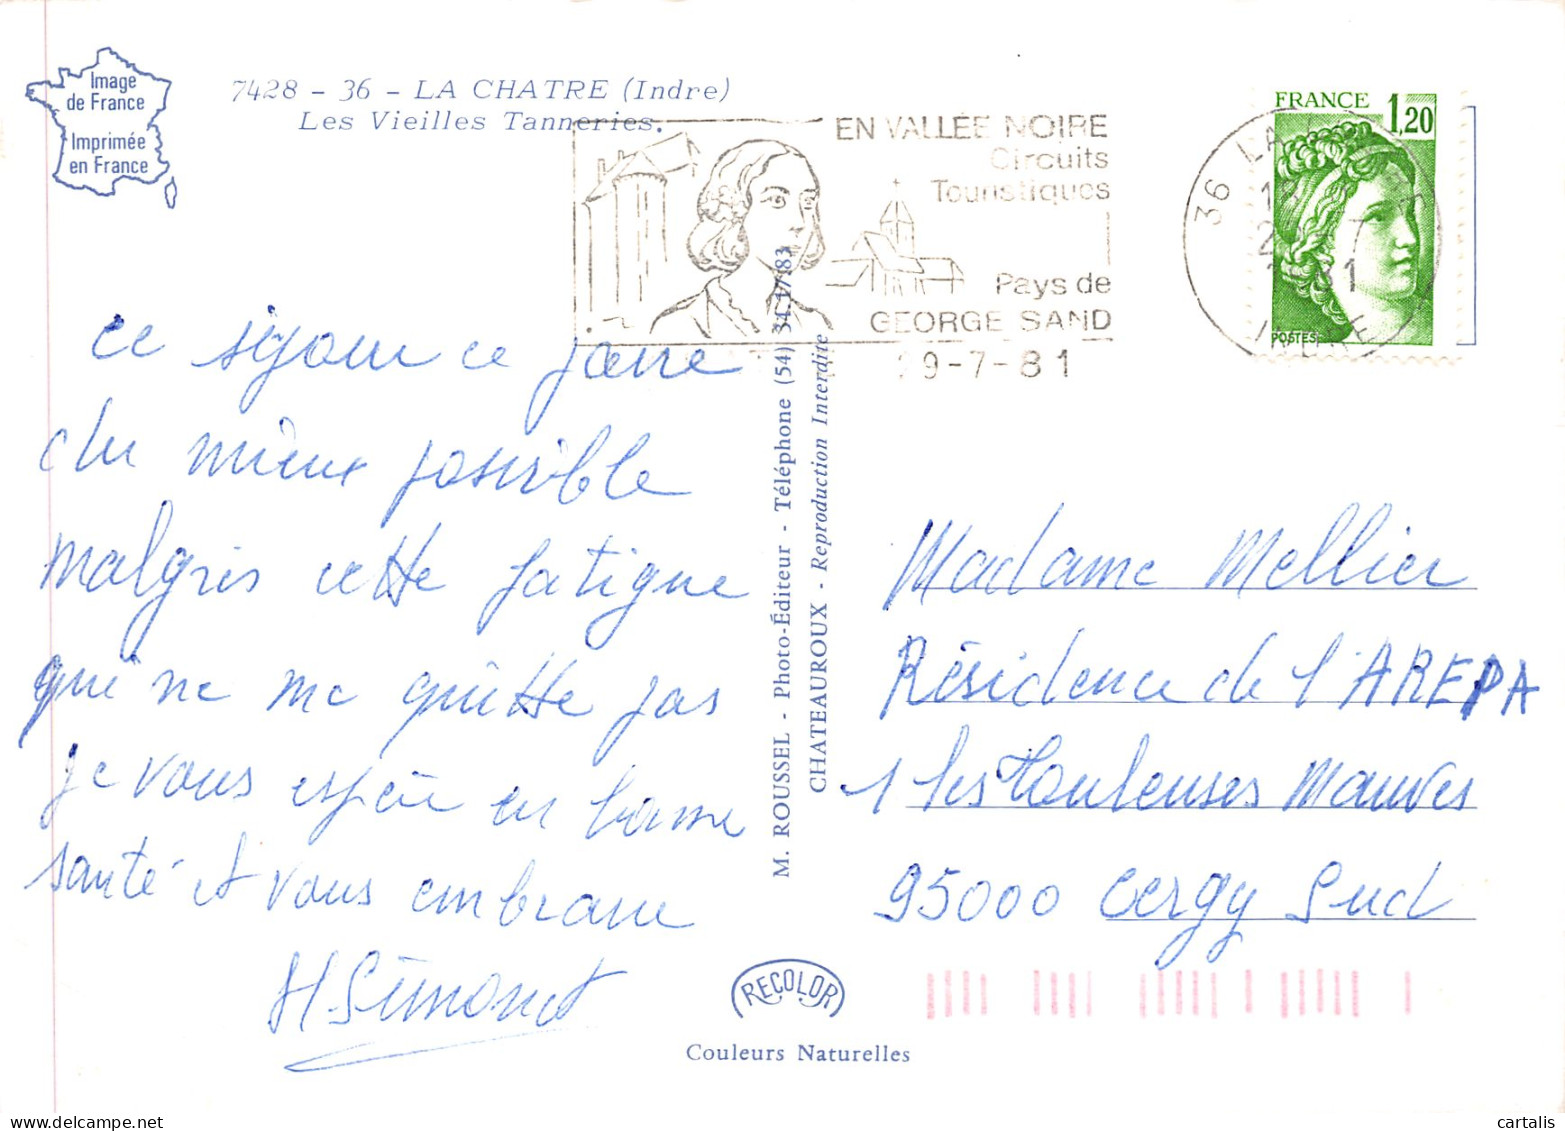 Image
de France
Imprimée
en France
7428 - 36 - LA CHATRE (Indre)
Les Vieilles Tanneries.
EN VALLÉE NOIRE
Circuits
Touristiques
Pays de
GEORGE SAND
29-7-81
36 LA
INDRE
FRANCE 1,20
POSTES
ce séjour ce passe
du mieux possible
malgrés cette fatigue
qui ne me quitte pas
je vous espère en bonne
santé et vous embrasse
H Simonet
M. ROUSSEL - Photo-Éditeur - Téléphone (54) 34.17.83
CHATEAUROUX - Reproduction Interdite
Madame Mellier
Résidence de l'AREPA
1 les Touleuses Mauves
95000 Cergy Sud
RECOLOR
Couleurs Naturelles
cartalis
www.delcampe.net